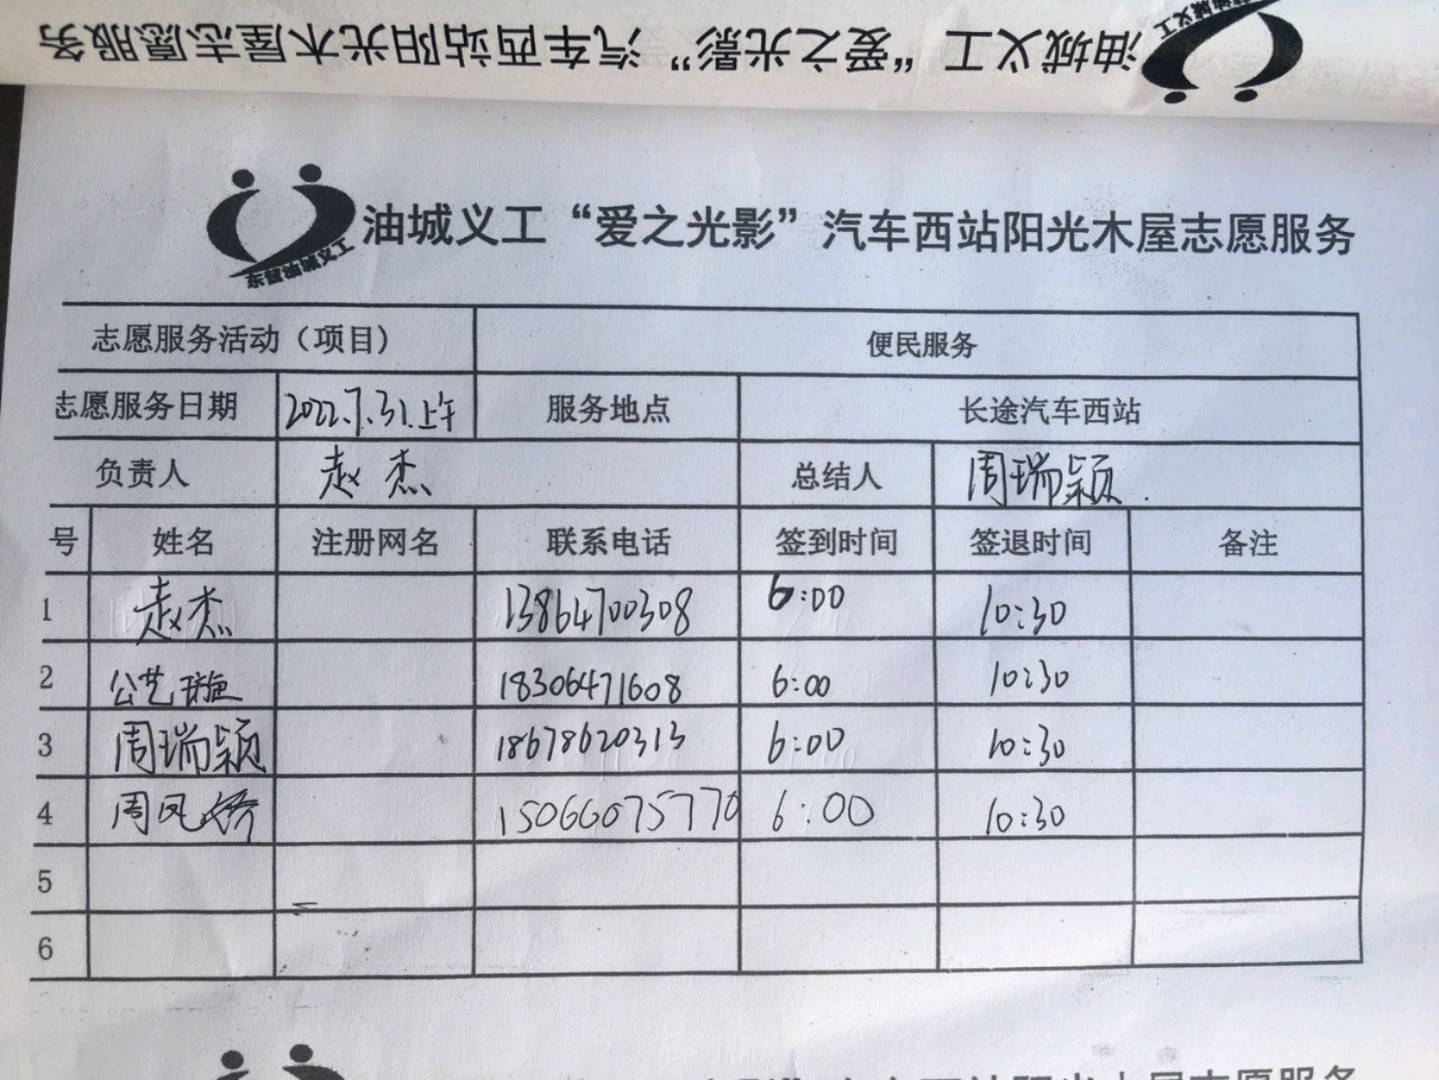 油城义工“爱之光影”汽车西站阳光木屋志愿服务
油城义工“爱之光影”汽车西站阳光木屋志愿服务
东营油城义工
志愿服务活动（项目） 便民服务
志愿服务日期 2022.7.31.上午 服务地点 长途汽车西站
负责人 赵杰 总结人 周瑞颖
号 姓名 注册网名 联系电话 签到时间 签退时间 备注
1 赵杰 13864700308 6:00 10:30
2 公艺璇 18306471608 6:00 10:30
3 周瑞颖 18678620313 6:00 10:30
4 周凤娇 15066075770 6:00 10:30
5
6